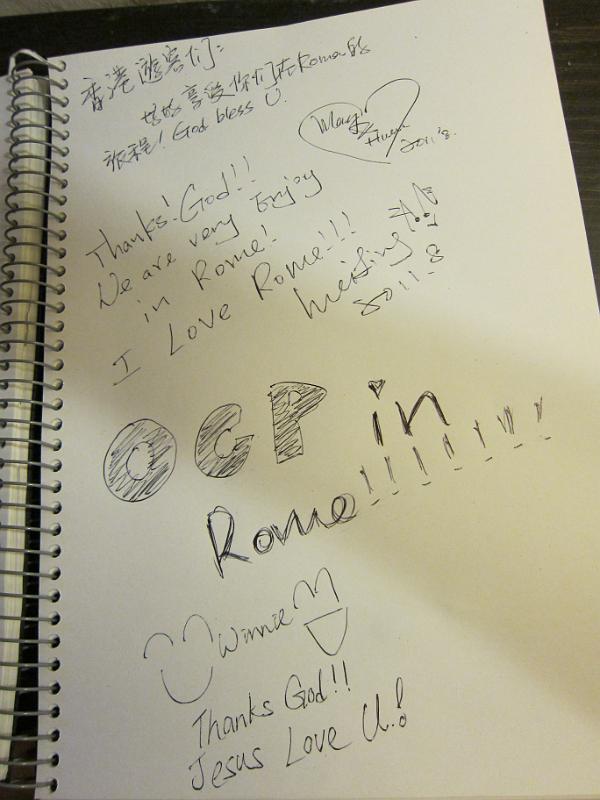 香港遊客们:
好好享受你们在Roma的
旅程! God bless U.
2011's.
Thanks! God!!
We are very Enjoy
in Rome!
I Love Rome!!!
meiting
2011.8
OCP in
Rome!!!!!!!!
Winnie
Thanks God!!
Jesus Love U.!